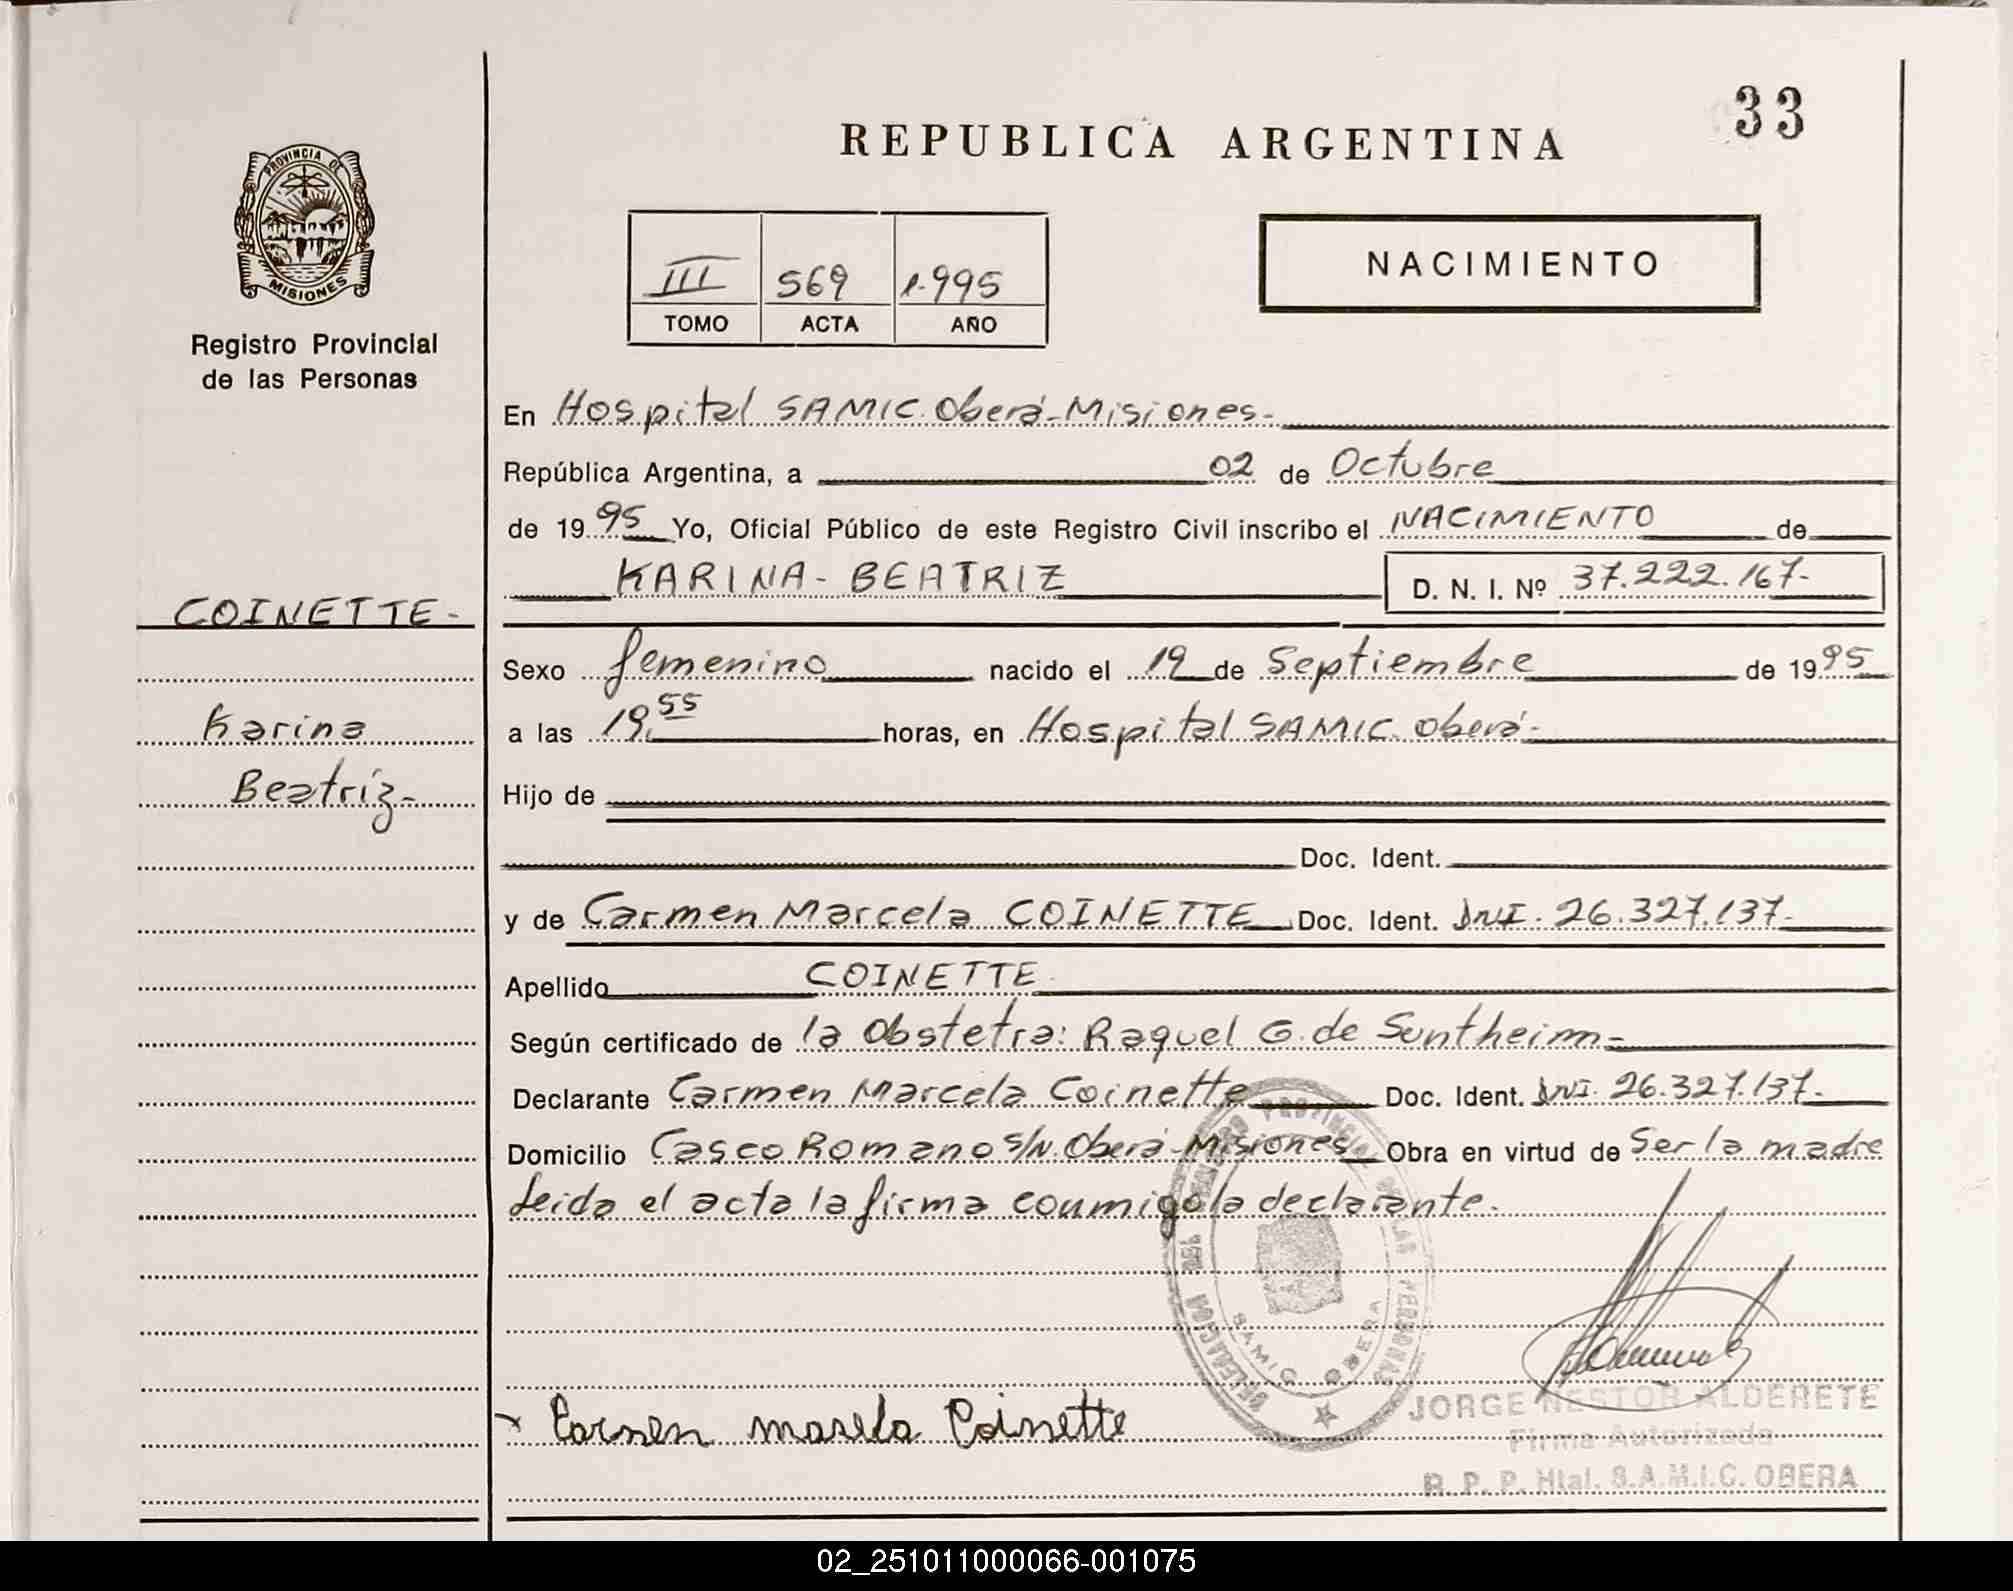 33
REPUBLICA ARGENTINA
PROVINCIA DE
MISIONES
Registro Provincial
de las Personas
III 569 1.995
TOMO ACTA AÑO
NACIMIENTO
En Hospital SAMIC. Oberá-Misiones-
República Argentina, a 02 de Octubre
de 1995 Yo, Oficial Público de este Registro Civil inscribo el NACIMIENTO de
KARINA- BEATRIZ D. N. I. Nº 37.222.167-
COINETTE-
Karina
Beatriz-
Sexo femenino nacido el 19 de Septiembre de 1995
a las 19.55 horas, en Hospital SAMIC. Oberá-
Hijo de
Doc. Ident.
y de Carmen Marcela COINETTE Doc. Ident. DNI. 26.327.137-
Apellido COINETTE
Según certificado de la Obstetra: Raquel G. de Suntheim-
Declarante Carmen Marcela Coinette Doc. Ident. DNI. 26.327.137-
Domicilio Casco Romano S/N. Oberá-Misiones Obra en virtud de Ser la madre
Leida el acta la firma counmigo la declarante.
DELEGACION DEL REGISTRO PROVINCIAL DE LAS PERSONAS
SAMIC OBERA
x Carmen marcela Coinette
JORGE NESTOR ALDERETE
Firma Autorizada
R. P. P. Htal. S.A.M.I.C. OBERA
02_251011000066-001075